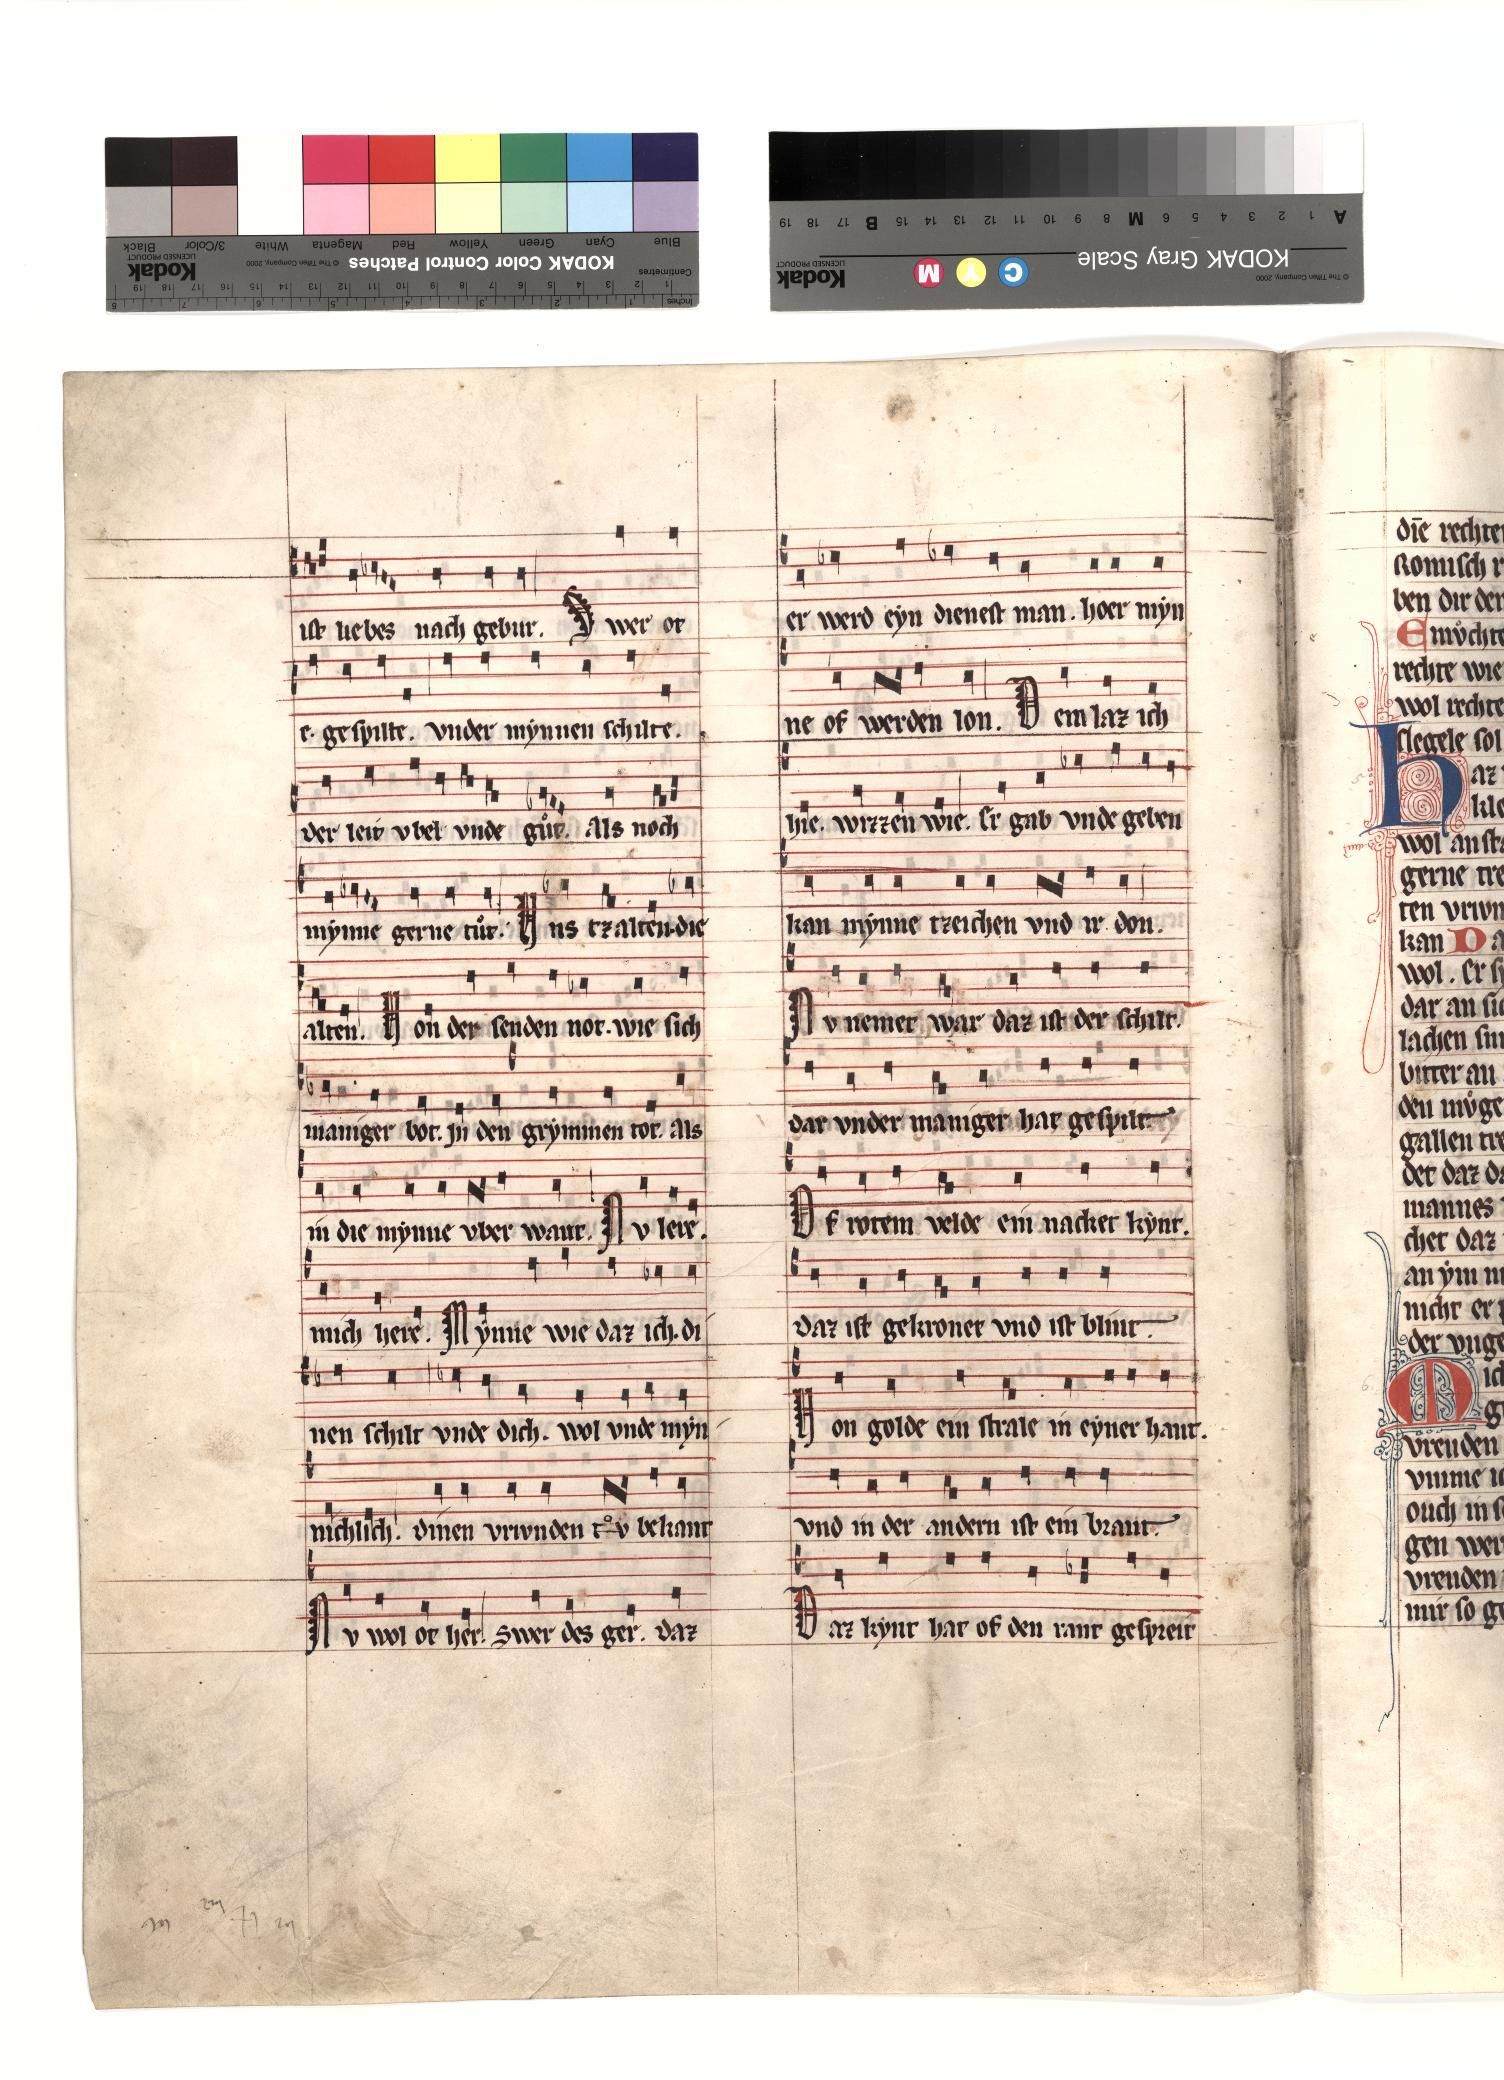 Blue Cyan Green Yellow Red Magenta White 3/Color Black
Centimetres KODAK Color Control Patches © The Tiffen Company, 2000 Kodak
LICENSED PRODUCT
1 2 3 4 5 6 7 8 9 10 11 12 13 14 15 16 17 18 19
Inches 1 2 3 4 5 6 7 8
A 1 2 3 4 5 6 M 8 9 10 11 12 13 14 15 B 17 18 19
© The Tiffen Company, 2000 KODAK Gray Scale C Y M Kodak
LICENSED PRODUCT
ist liebes nach gebur. S wer ot
e. gespilte. vnder mynnen schilte.
der leit vbel vnde gůt. Als noch
mynne gerne tůt. V ns tzalten. die
alten. V on der senden not. wie sich
maniger bot. Jn den grymmen tot. Als
in die mynne vber want. N v lere.
mich here. M ynne wie daz ich. di
nen schilt vnde dich. wol vnde myn
nichlich. dinen vrivnden tͦv bekant
N v wol ot her. Swer des ger. daz
er werd eyn dienest man. hoer myn
ne of werden lon. D em laz ich
hie. wizzen wie. Er gab vnde geben
kan mynne tzeichen vnd ir don.
N v nemet war daz ist der schilt.
dar vnder maniger hat gespilt.
V f rotem velde ein nacket kynt.
daz ist gekronet vnd ist blint.
V on golde ein strale in eyner hant.
vnd in der andern ist ein brant.
D az kynt hat of den rant gespreit
die rechte
Romisch
ben dir der
E mvͦchte
rechte wie
wol rechte
slegele sol
H az
kle
wol an
gerne tre
ten vriwn
kan D a
wol. Er
dar an
lachen
bitter an
den mvͦge
gallen
der daz
mannes
cher daz
an ym
nicht er
der vnge
M ich
vrenden
ouch in
gen wer
vrenden
mir so ge